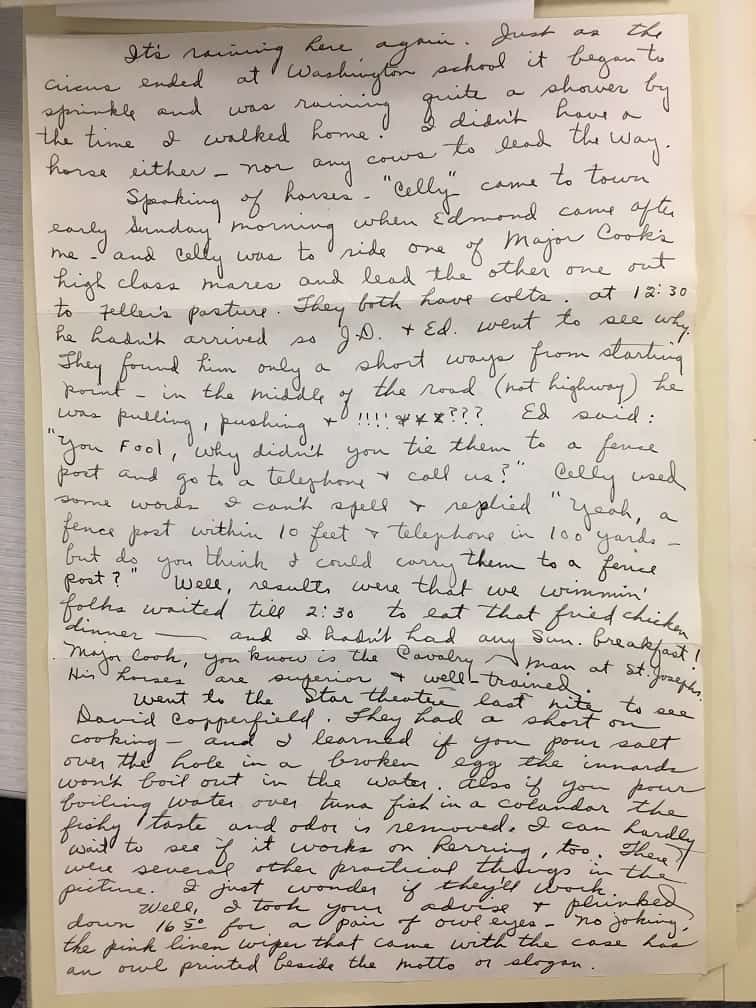 It's raining here again. Just as the
circus ended at Washington school it began to
sprinkle and was raining quite a shower by
the time I walked home. I didn't have a
horse either - nor any cows to lead the way.
Speaking of horses - "Celly" came to town
early Sunday morning when Edmond came after
me - and Celly was to ride one of Major Cook's
high class mares and lead the other one out
to Feller's pasture. They both have colts. at 12:30
he hadn't arrived so J.D. & Ed. went to see why.
They found him only a short ways from starting
point - in the middle of the road (not highway) he
was pulling, pushing & !!!! ***??? Ed said:
"You Fool, why didn't you tie them to a fence
post and go to a telephone & call us?" Celly used
some words I can't spell & replied "Yeah, a
fence post within 10 feet & telephone in 100 yards -
but do you think I could carry them to a fence
post?" Well, results were that we wimmin'
folks waited till 2:30 to eat that fried chicken
dinner — and I hadn't had any Sun. breakfast!
Major Cook, you know is the Cavalry man at St. Josephs.
His horses are superior & well-trained.
Went to the Star theatre last nite to see
David Copperfield. They had a short on
cooking - and I learned if you pour salt
over the hole in a broken egg the innards
won't boil out in the water. Also if you pour
boiling water over tuna fish in a colandar the
fishy taste and odor is removed. I can hardly
wait to see if it works on herring, too. There
were several other practical things in the
picture. I just wonder if they'll work.
Well, I took your advise & plunked
down 16 50 for a pair of owl eyes - no joking,
the pink linen wiper that came with the case has
an owl printed beside the motto or slogan.